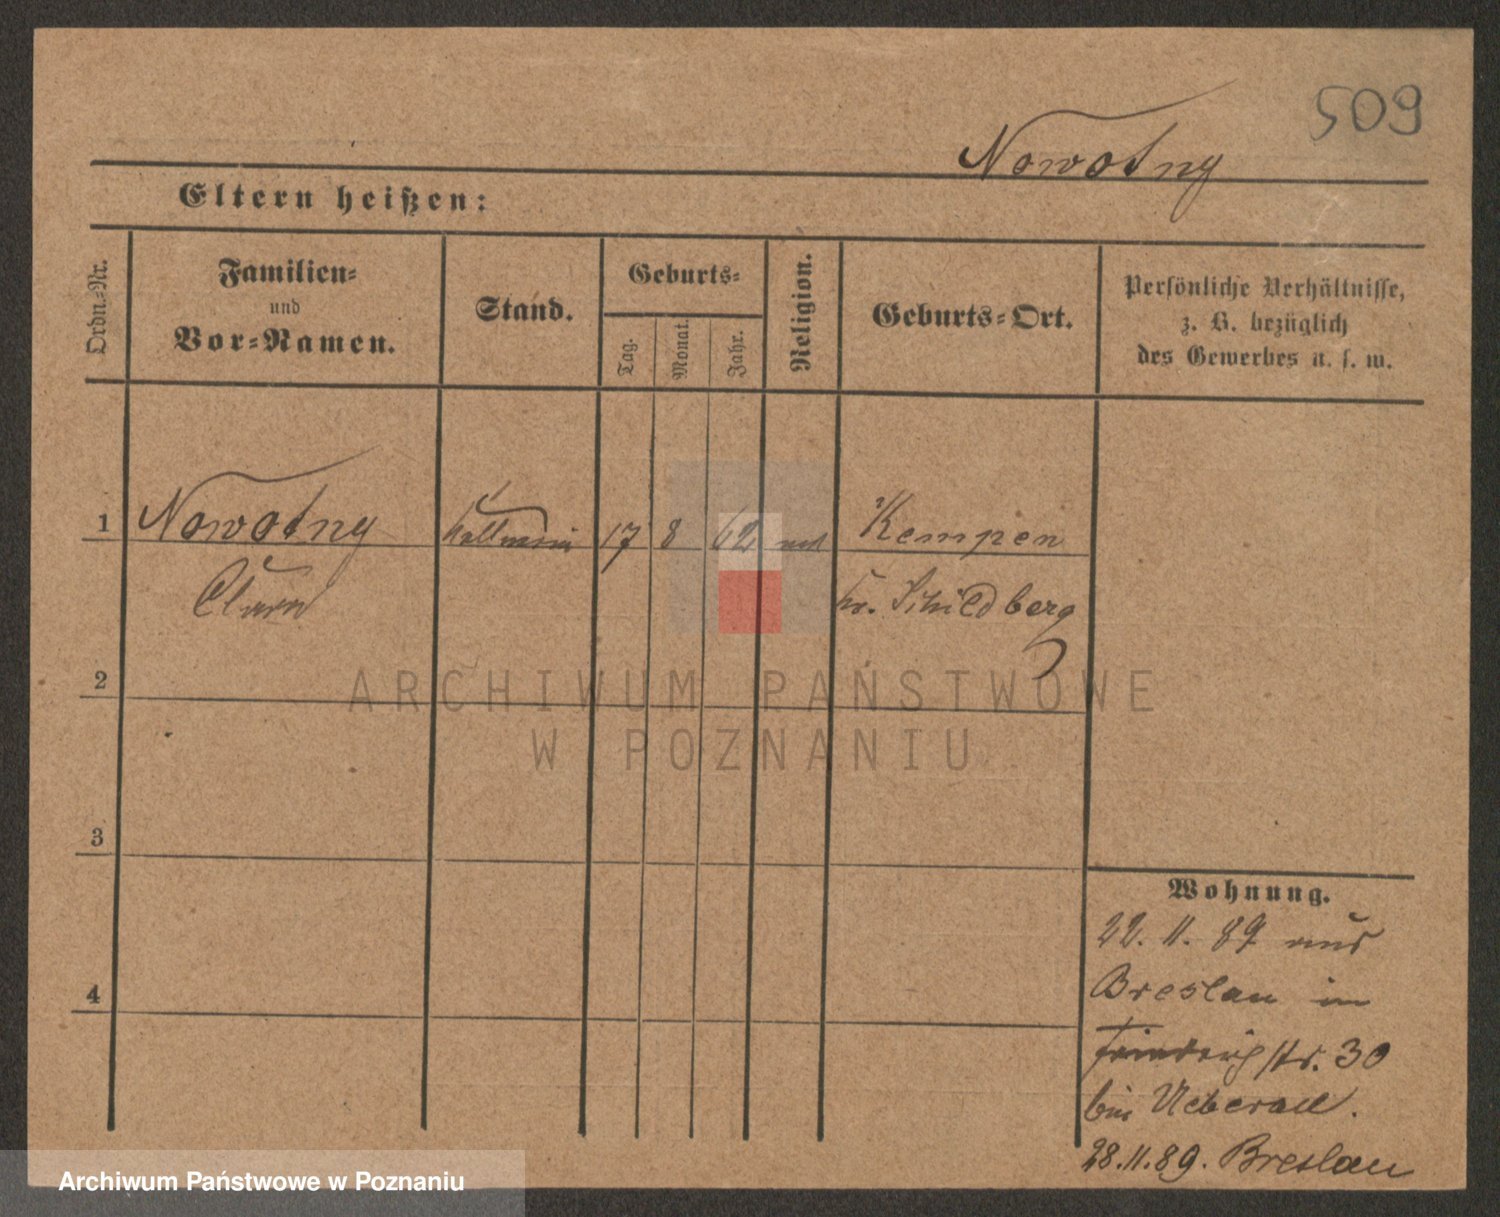 509
Nowotny
Eltern heißen:
Ordn.-Nr.
Familien-
und
Vor-Namen.
Stand.
Geburts-
Tag.
Monat.
Jahr.
Religion.
Geburts-Ort.
Persönliche Verhältnisse,
z. B. bezüglich
des Gewerbes u. s. w.
1 Nowotny Kellnerin 17 8 62 Kempen
Clara Kr. Schildberg
2
ARCHIWUM PAŃSTWOWE
W POZNANIU
3
4
Wohnung.
22. 11. 89 aus
Breslau in
Friedrichstr. 30
bei Ueberall.
28.11.89. Breslau
Archiwum Państwowe w Poznaniu